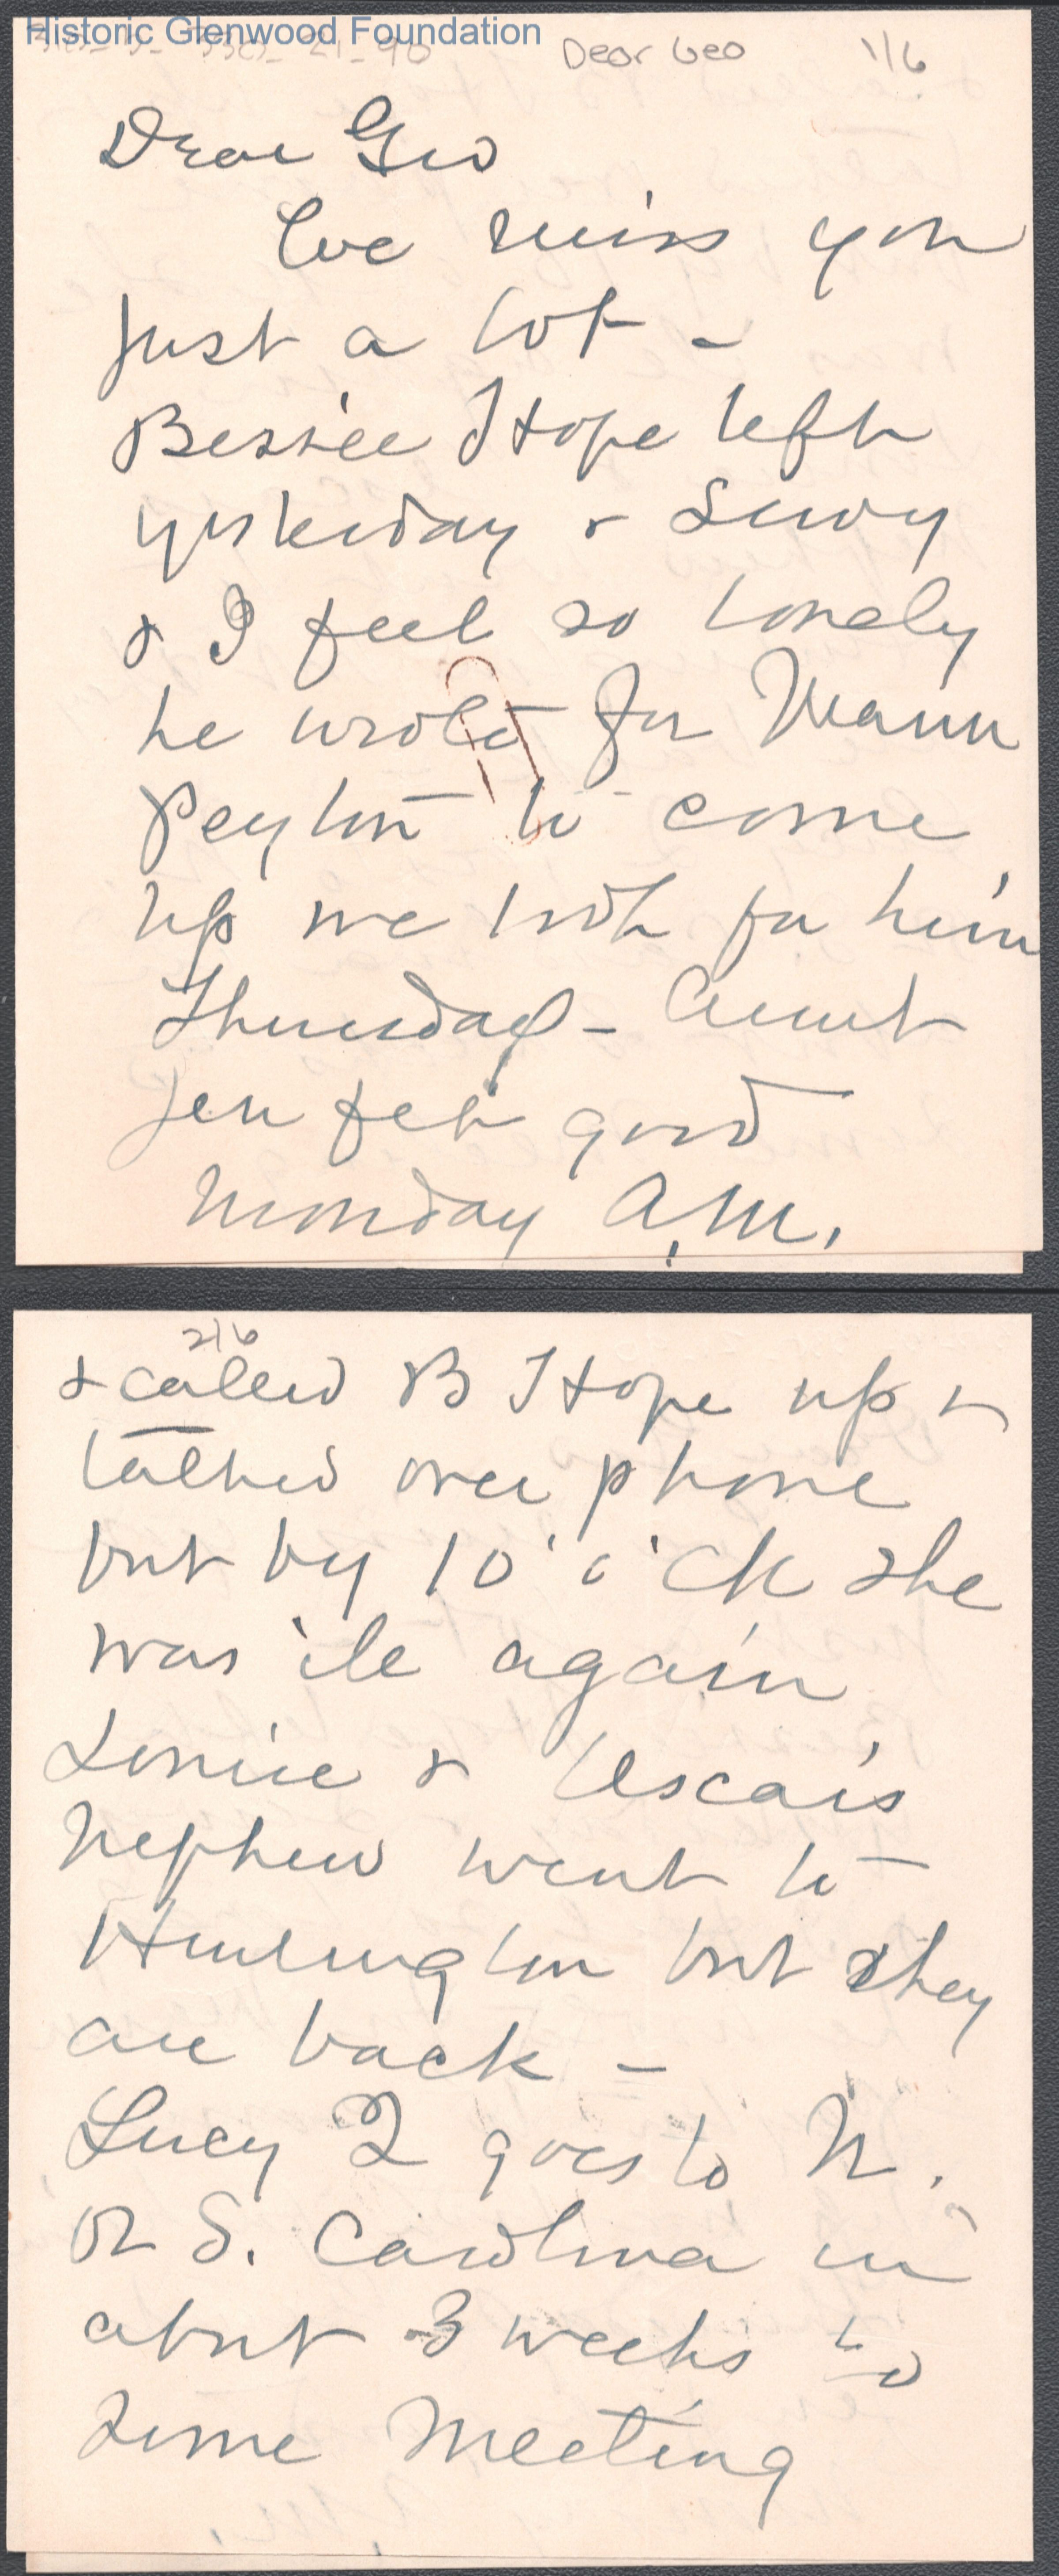 Historic Glenwood Foundation
Dear Geo 1/6
Dear Geo
We miss you
just a lot -
Bessiee Hope left
yesterday &
& I feel so lonely
he wrote for Mann
Peyton to come
up we look for him
Thursday - Aunt
Jen felt good
Monday A.M.
2/6
& called B Hope up &
talked over phone
but by 10 o'ck she
was ile again
& Uscar's
Nephew went to
Huntington but they
are back -
Lucy Q goes to N.
or S. Carolina in
about 3 weeks to
some meeting